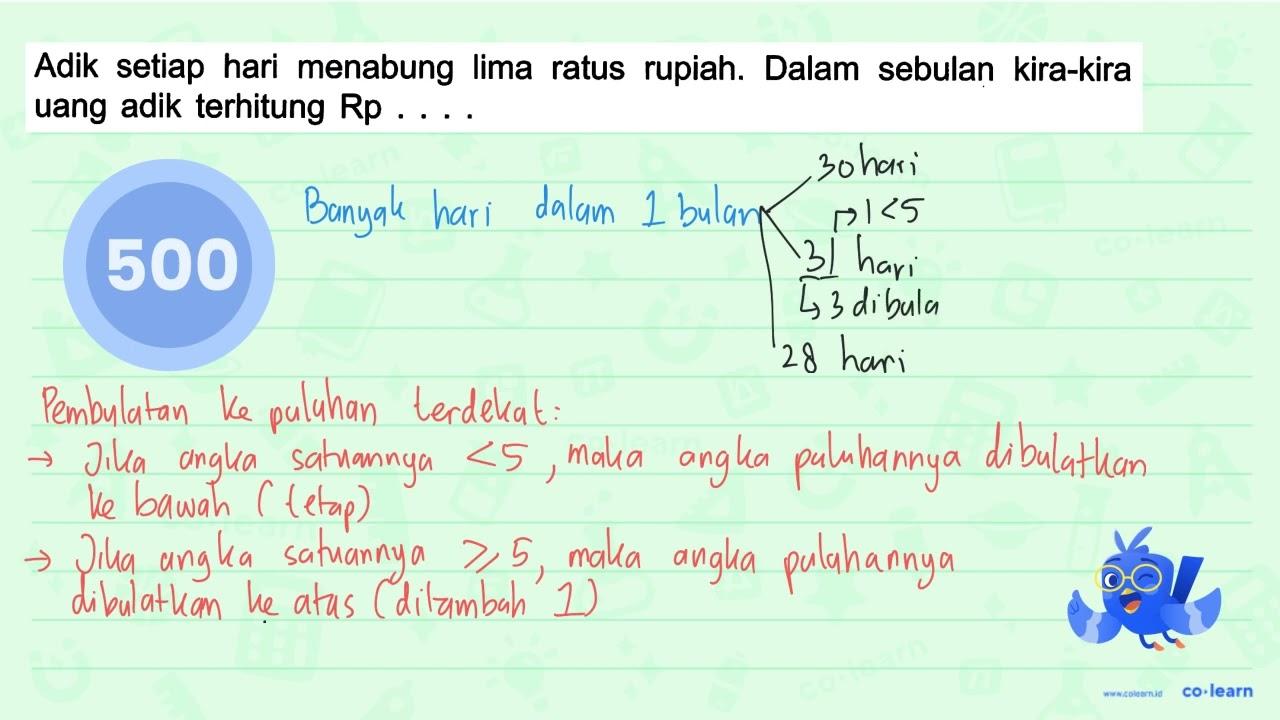 Adik setiap hari menabung lima ratus rupiah. Dalam sebulan kira-kira
uang adik terhitung Rp . . . .
500
Banyak hari dalam 1 bulan
30 hari
1<5
31 hari
↳ 3 dibula
28 hari
Pembulatan ke puluhan terdekat:
→ Jika angka satuannya <5, maka angka puluhannya dibulatkan
ke bawah (tetap)
→ Jika angka satuannya ≥ 5, maka angka puluhannya
dibulatkan ke atas (ditambah 1)
www.colearn.id co·learn